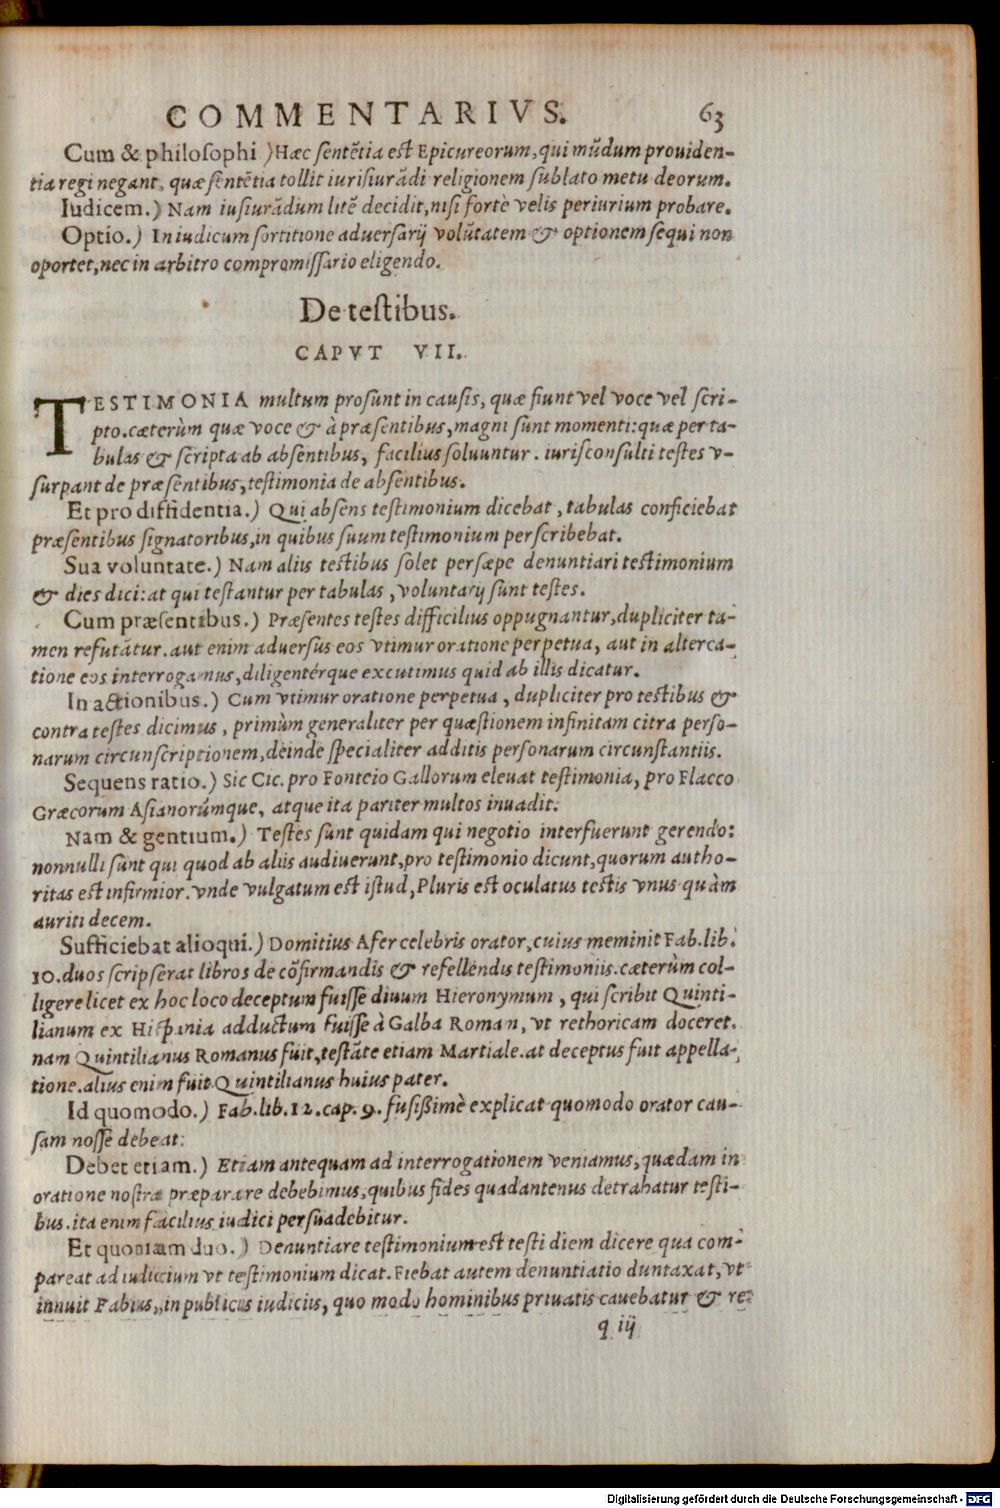 COMMENTARIVS. 63
Cum & philosophi )Hæc sentẽtia est Epicureorum,qui mũdum prouiden-
tia regi negant, quæ sentẽtia tollit iurisiurãdi religionem sublato metu deorum.
Iudicem.) Nam iusiurãdum litẽ decidit,nisi fortè velis periurium probare.
Optio.) In iudicum sortitione aduersarij volũtatem & optionem sequi non
oportet,nec in arbitro compromissario eligendo.
De testibus.
CAPVT VII.
TESTIMONIA multum prosunt in causis, quæ fiunt vel voce vel scri-
pto.cæterùm quæ voce & à præsentibus,magni sunt momenti:quæ per ta-
bulas & scripta ab absentibus, facilius soluuntur. iurisconsulti testes v-
surpant de præsentibus,testimonia de absentibus.
Et pro diffidentia.) Qui absens testimonium dicebat, tabulas conficiebat
præsentibus signatoribus,in quibus suum testimonium perscribebat.
Sua voluntate.) Nam aliis testibus solet persæpe denuntiari testimonium
& dies dici:at qui testantur per tabulas, voluntarij sunt testes.
Cum præsentibus.) Præsentes testes difficilius oppugnantur,dupliciter ta-
men refutãtur.aut enim aduersus eos vtimur oratione perpetua, aut in alterca-
tione eos interrogamus,diligentérque excutimus quid ab illis dicatur.
In actionibus.) Cum vtimur oratione perpetua, dupliciter pro testibus &
contra testes dicimus, primùm generaliter per quæstionem infinitam citra perso-
narum circunscriptionem,deinde specialiter additis personarum circunstantiis.
Sequens ratio.) Sic Cic. pro Fonteio Gallorum eleuat testimonia, pro Flacco
Græcorum Asianorúmque, atque ita pariter multos inuadit.
Nam & gentium.) Testes sunt quidam qui negotio interfuerunt gerendo:
nonnulli sunt qui quod ab aliis audiuerunt,pro testimonio dicunt,quorum autho-
ritas est infirmior.vnde vulgatum est istud,Pluris est oculatus testis vnus quàm
auriti decem.
Sufficiebat alioqui.) Domitius Afer celebris orator,cuius meminit Fab.lib.
10.duos scripserat libros de cõfirmandis & refellendis testimoniis.cæterùm col-
ligere licet ex hoc loco deceptum fuisse diuum Hieronymum, qui scribit Quinti-
lianum ex Hispania adductum fuisse à Galba Roman, vt rethoricam doceret.
nam Quintilianus Romanus fuit,testãte etiam Martiale.at deceptus fuit appella-
tione.alius enim fuit Quintilianus huius pater.
Id quomodo.) Fab.lib.12.cap.9.fusißimè explicat quomodo orator cau-
sam nosse debeat:
Debet etiam.) Etiam antequam ad interrogationem veniamus,quædam in
oratione nostra præparare debebimus,quibus fides quadantenus detrahatur testi-
bus.ita enim facilius iudici persuadebitur.
Et quoniam duo.) Denuntiare testimonium est testi diem dicere qua com-
pareat ad iudicium vt testimonium dicat.Fiebat autem denuntiatio duntaxat,vt
innuit Fabius, in publicis iudiciis, quo modo hominibus priuatis cauebatur & re-
q iij
Digitalisierung gefördert durch die Deutsche Forschungsgemeinschaft - DFG